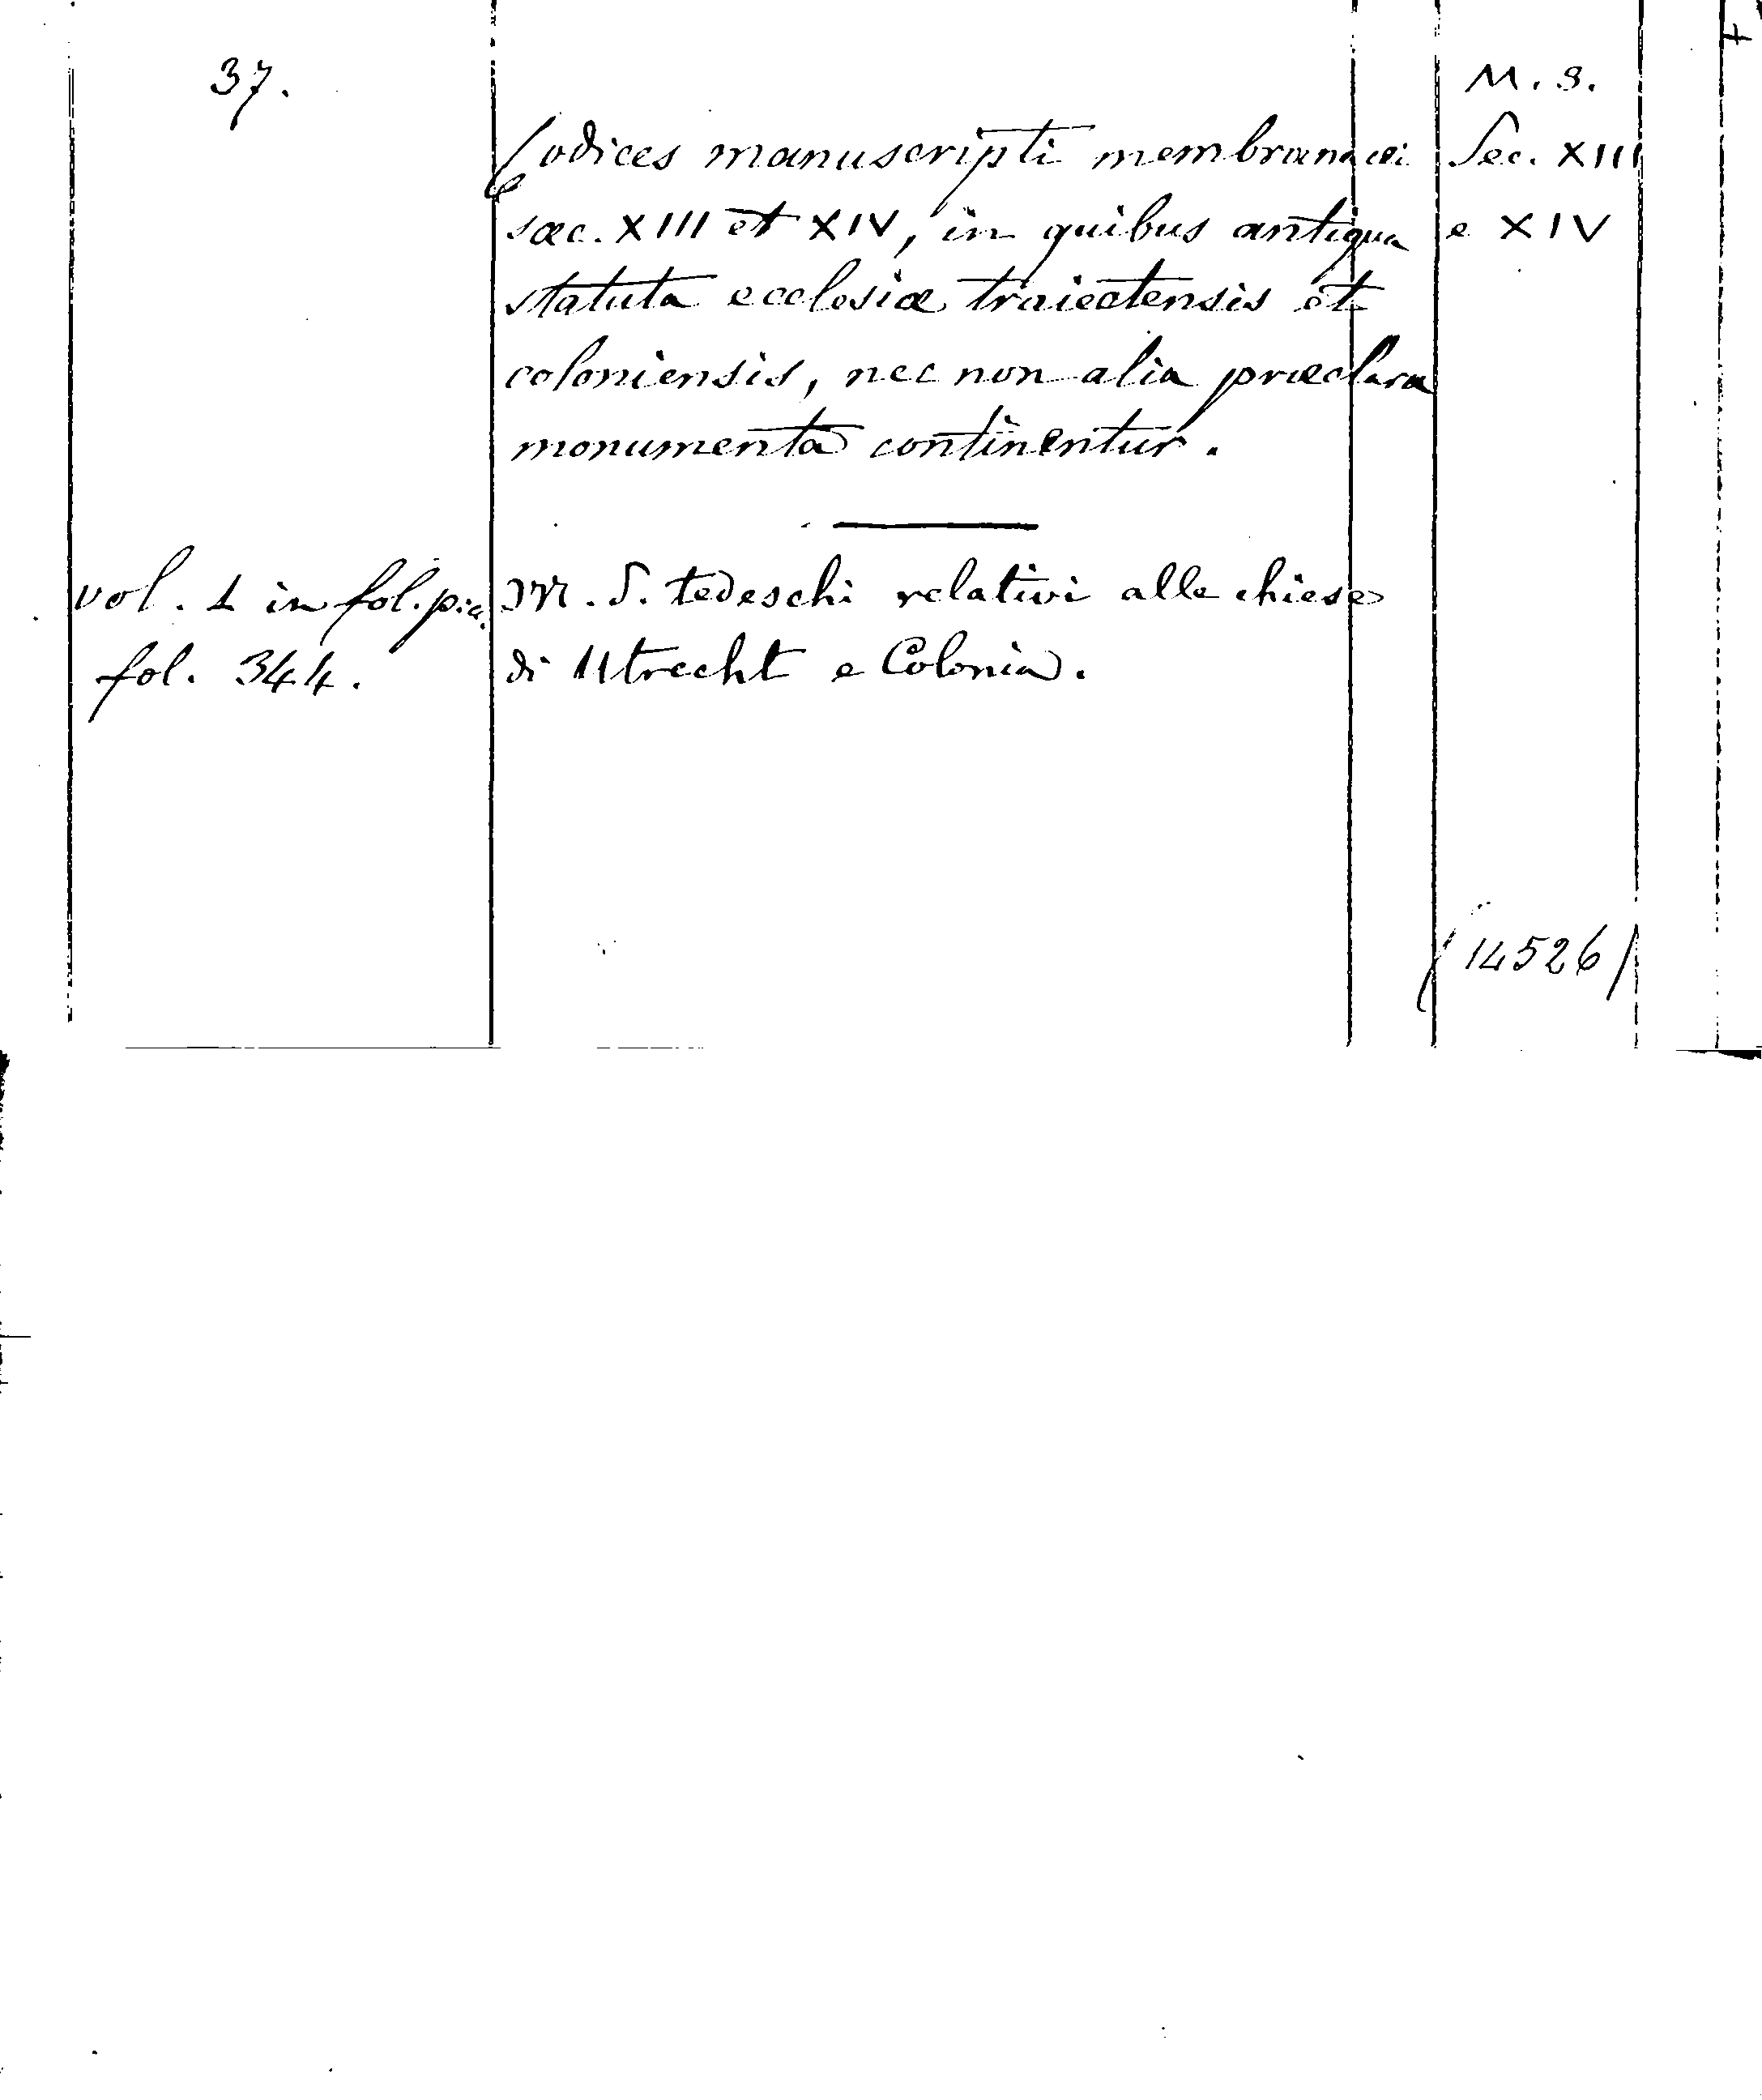 37.
M. S.
Codices manuscripti membranacei
Sec. XIII
sæc. XIII et XIV, in quibus antiqua
e XIV
statuta ecclesiæ traiectensis et
coloniensis, nec non alia præclara
monumenta continentur.
vol. 1 in fol. pic.
M. S. tedeschi relativi alle chiese
fol. 344.
di Utrecht e Colonia.
(14526)